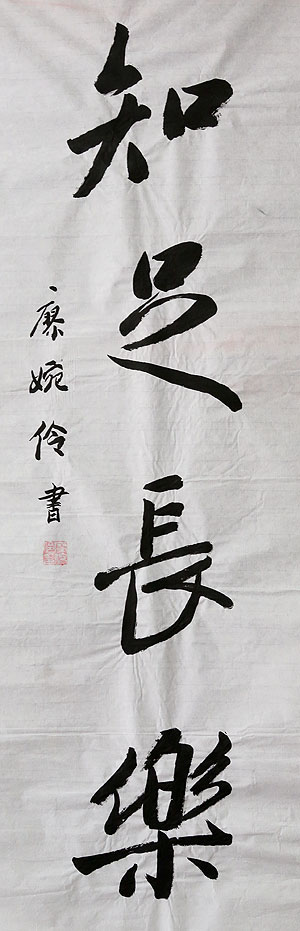 知足長樂
廖婉伶書